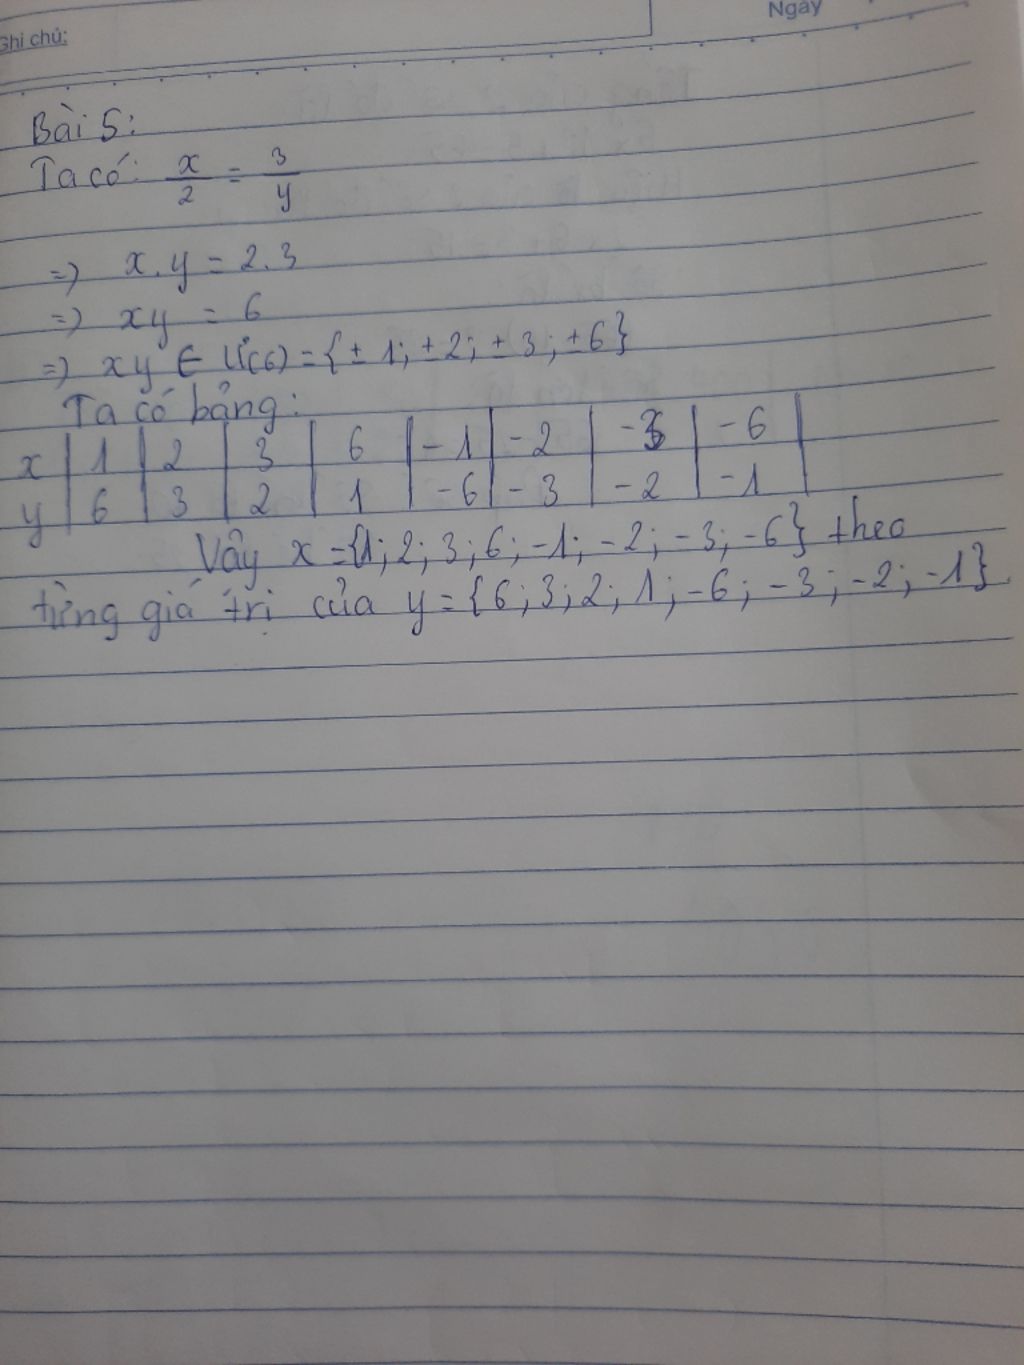 Ghi chú:
Ngày
Bài 5:
Ta có: x/2 = 3/y
=) x.y = 2.3
=) xy = 6
=) xy ∈ Ư(6) = {±1; ±2; ±3; ±6}
Ta có bảng:
x | 1 | 2 | 3 | 6 | -1 | -2 | -3 | -6 |
y | 6 | 3 | 2 | 1 | -6 | -3 | -2 | -1 |
Vậy x = {1; 2; 3; 6; -1; -2; -3; -6} theo
từng giá trị của y = {6; 3; 2; 1; -6; -3; -2; -1}